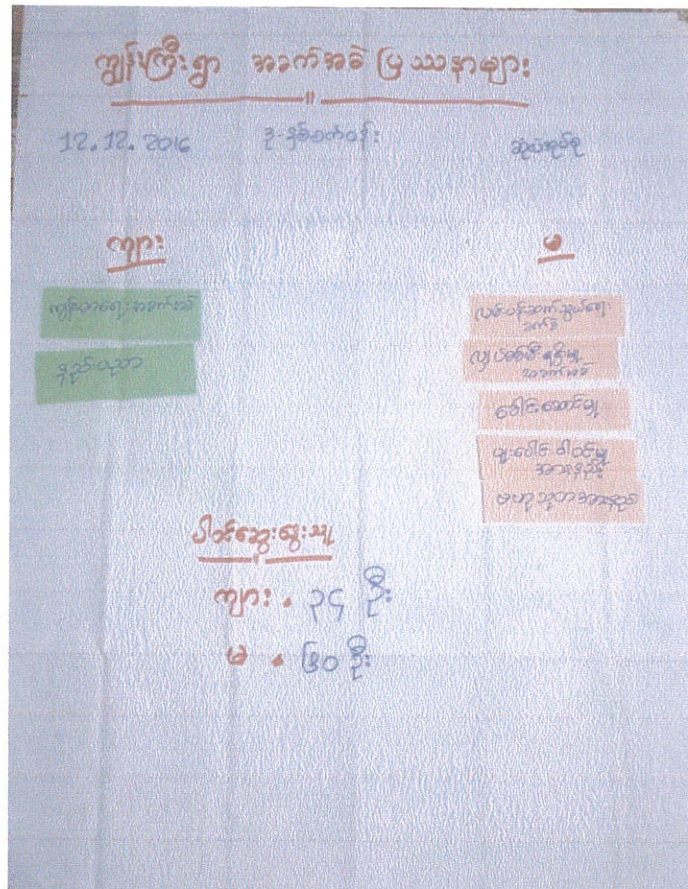 ကျွန်းကြီးရွာ အခက်အခဲ ပြဿနာများ
12.12.2016 ဒု-နှစ်စက်ဝန်း ဆုံလဲအုပ်စု
ကျား မ
ကျန်းမာရေးအခက်အခဲ
နည်းပညာ
လမ်းပန်းဆက်သွယ်ရေး
ခက်ခဲ
လျှပ်စစ်မီးရရှိမှု
အခက်အခဲ
ခေါင်းဆောင်မှု
ပူးပေါင်းပါဝင်မှု
အားနည်း
ဗဟုသုတအားနည်း
ပါဝင်ဆွေးနွေးသူ
ကျား . ၃၄ ဦး
မ . ၆၀ ဦး